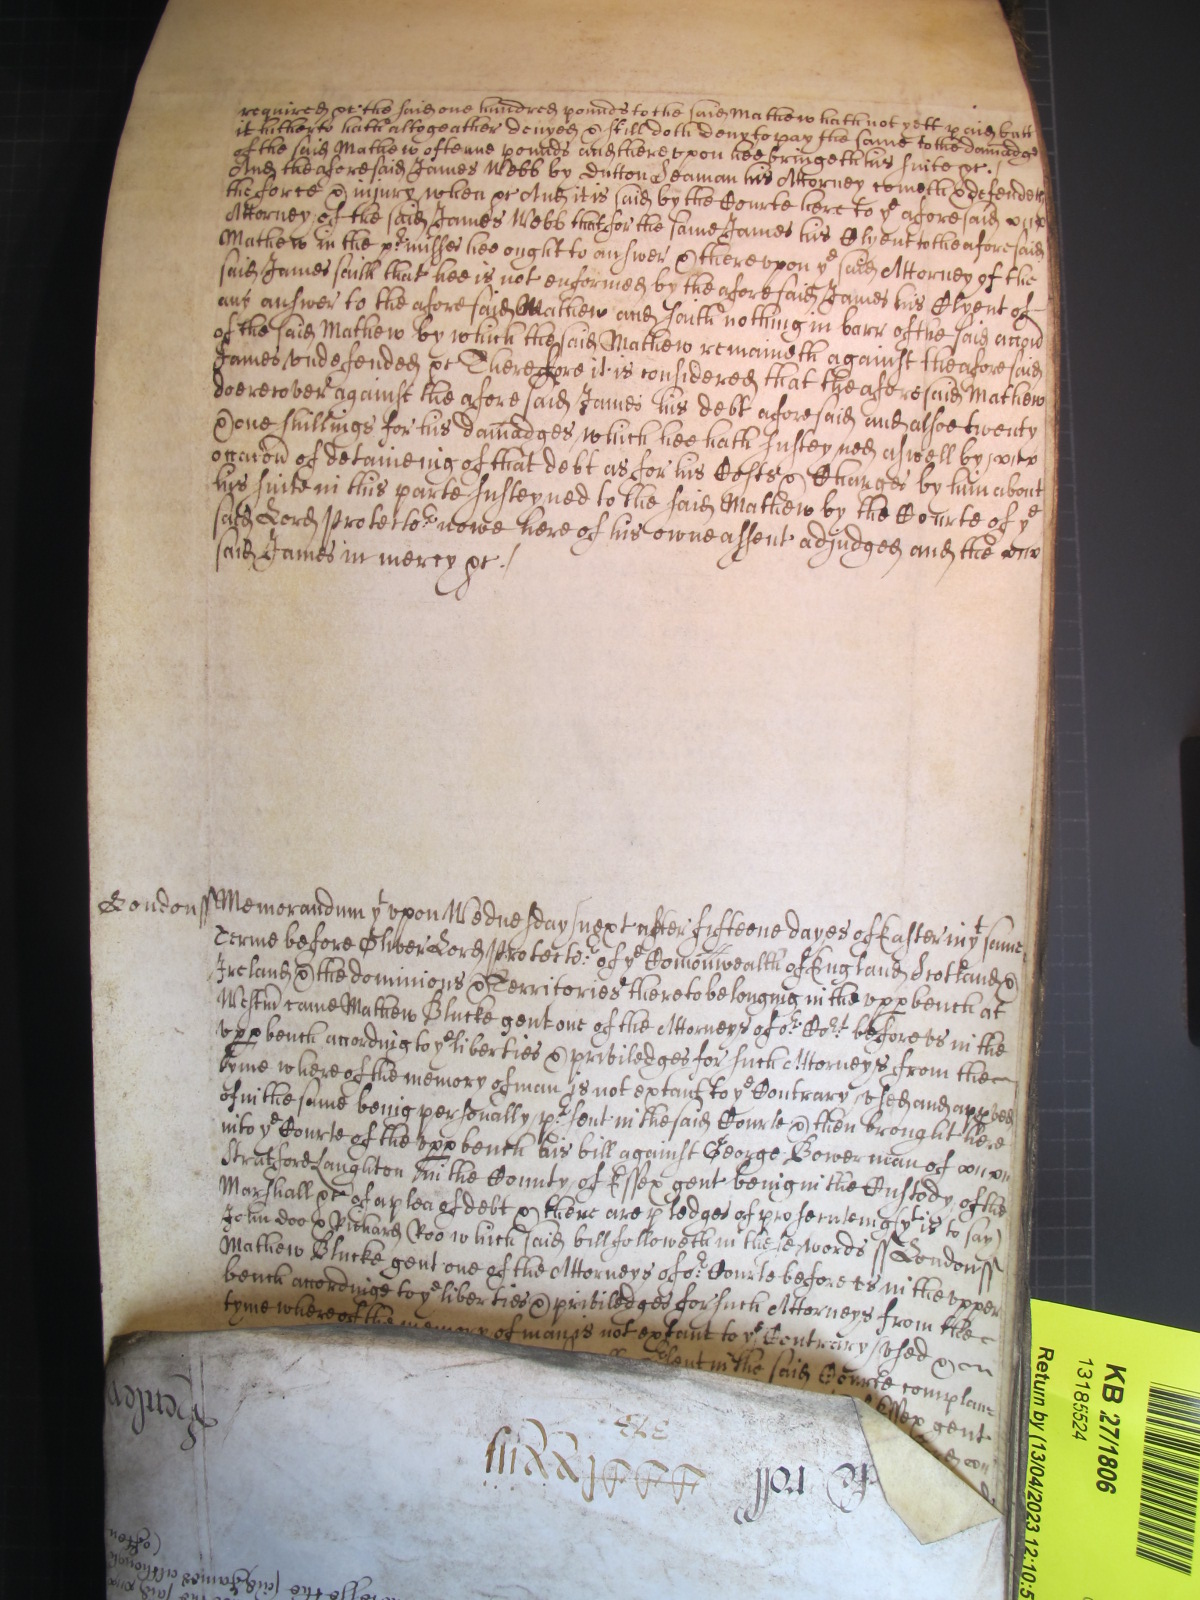 required &c the said one hundred pounds to the said Mathew hath not yett paid butt
it hitherto hath altogeather denyed & still doth deny to pay the same to the damadge
of the said Mathew of tenne pounds and thereupon hee bringeth his suite &c.
And the aforesaid James Webb by Dutton Seaman his Attorney cometh & defendeth
the force & injury when &c And it is said by the Courte here to ye aforesaid
Attorney of the said James Webb that for the same James his Clyent to the aforesaid
Mathew in the prmisses hee ought to answer & thereupon ye said Attorney of the
said James saith that hee is not enformed by the aforesaid James his Clyent of
any answer to the aforesaid Mathew and saith nothing in barr of the said accon
of the said Mathew by which the said Mathew remaineth against the aforesaid
James undefended &c Therefore it is considered that the aforesaid Mathew
doe recover against the aforesaid James his debt aforesaid and alsoe twenty
& one shillings for his damadges which hee hath susteyned aswell by
occacon of detaineing of that debt as for his Costs & Charges by him about
his suite in this parte susteyned to the said Mathew by the Courte of ye
said Lord Protector nowe here of his owne assent adjudged and the
said James in mercy &c./
London ss Memorandum yt upon Wednesday next after fifteene dayes of Easter in ys same
Terme before Oliver Lord Protectr of ye Comonwealth of England Scotland &
Ireland & the dominions & Territories thereto belonging in the upp bench at
Westm came Mathew Blucke gent one of the Attorneys of or Cort before us in the
upp bench according to ye liberties & priviledges for such Attorneys from the
tyme whereof the memory of man is not extant to ye Contrary used and approved
of in the same benig personally prsent in the said Courte & then brought here
into ye Courte of the upp bench his bill against George Bowerman of
Stratford Langhton in the County of Essex gent benig in the Custody of the
Marshall &c of a plea of debt & there are pledges of prosecuteing (yt is to say)
John Doo & Richard Roo which said bill followeth in these words ss London ss
Mathew Blucke gent one of the Attorneys of or Courte before us in the upper
bench accordinge to ye liberties & priviledges for such Attorneys from the
tyme whereof the memory of man is not extant to ye Contrary used &
sent in the said Courte complain
Essex gent
373
roll
KB 27/1806
13185524
Return by (13/04/2023 12:10:5